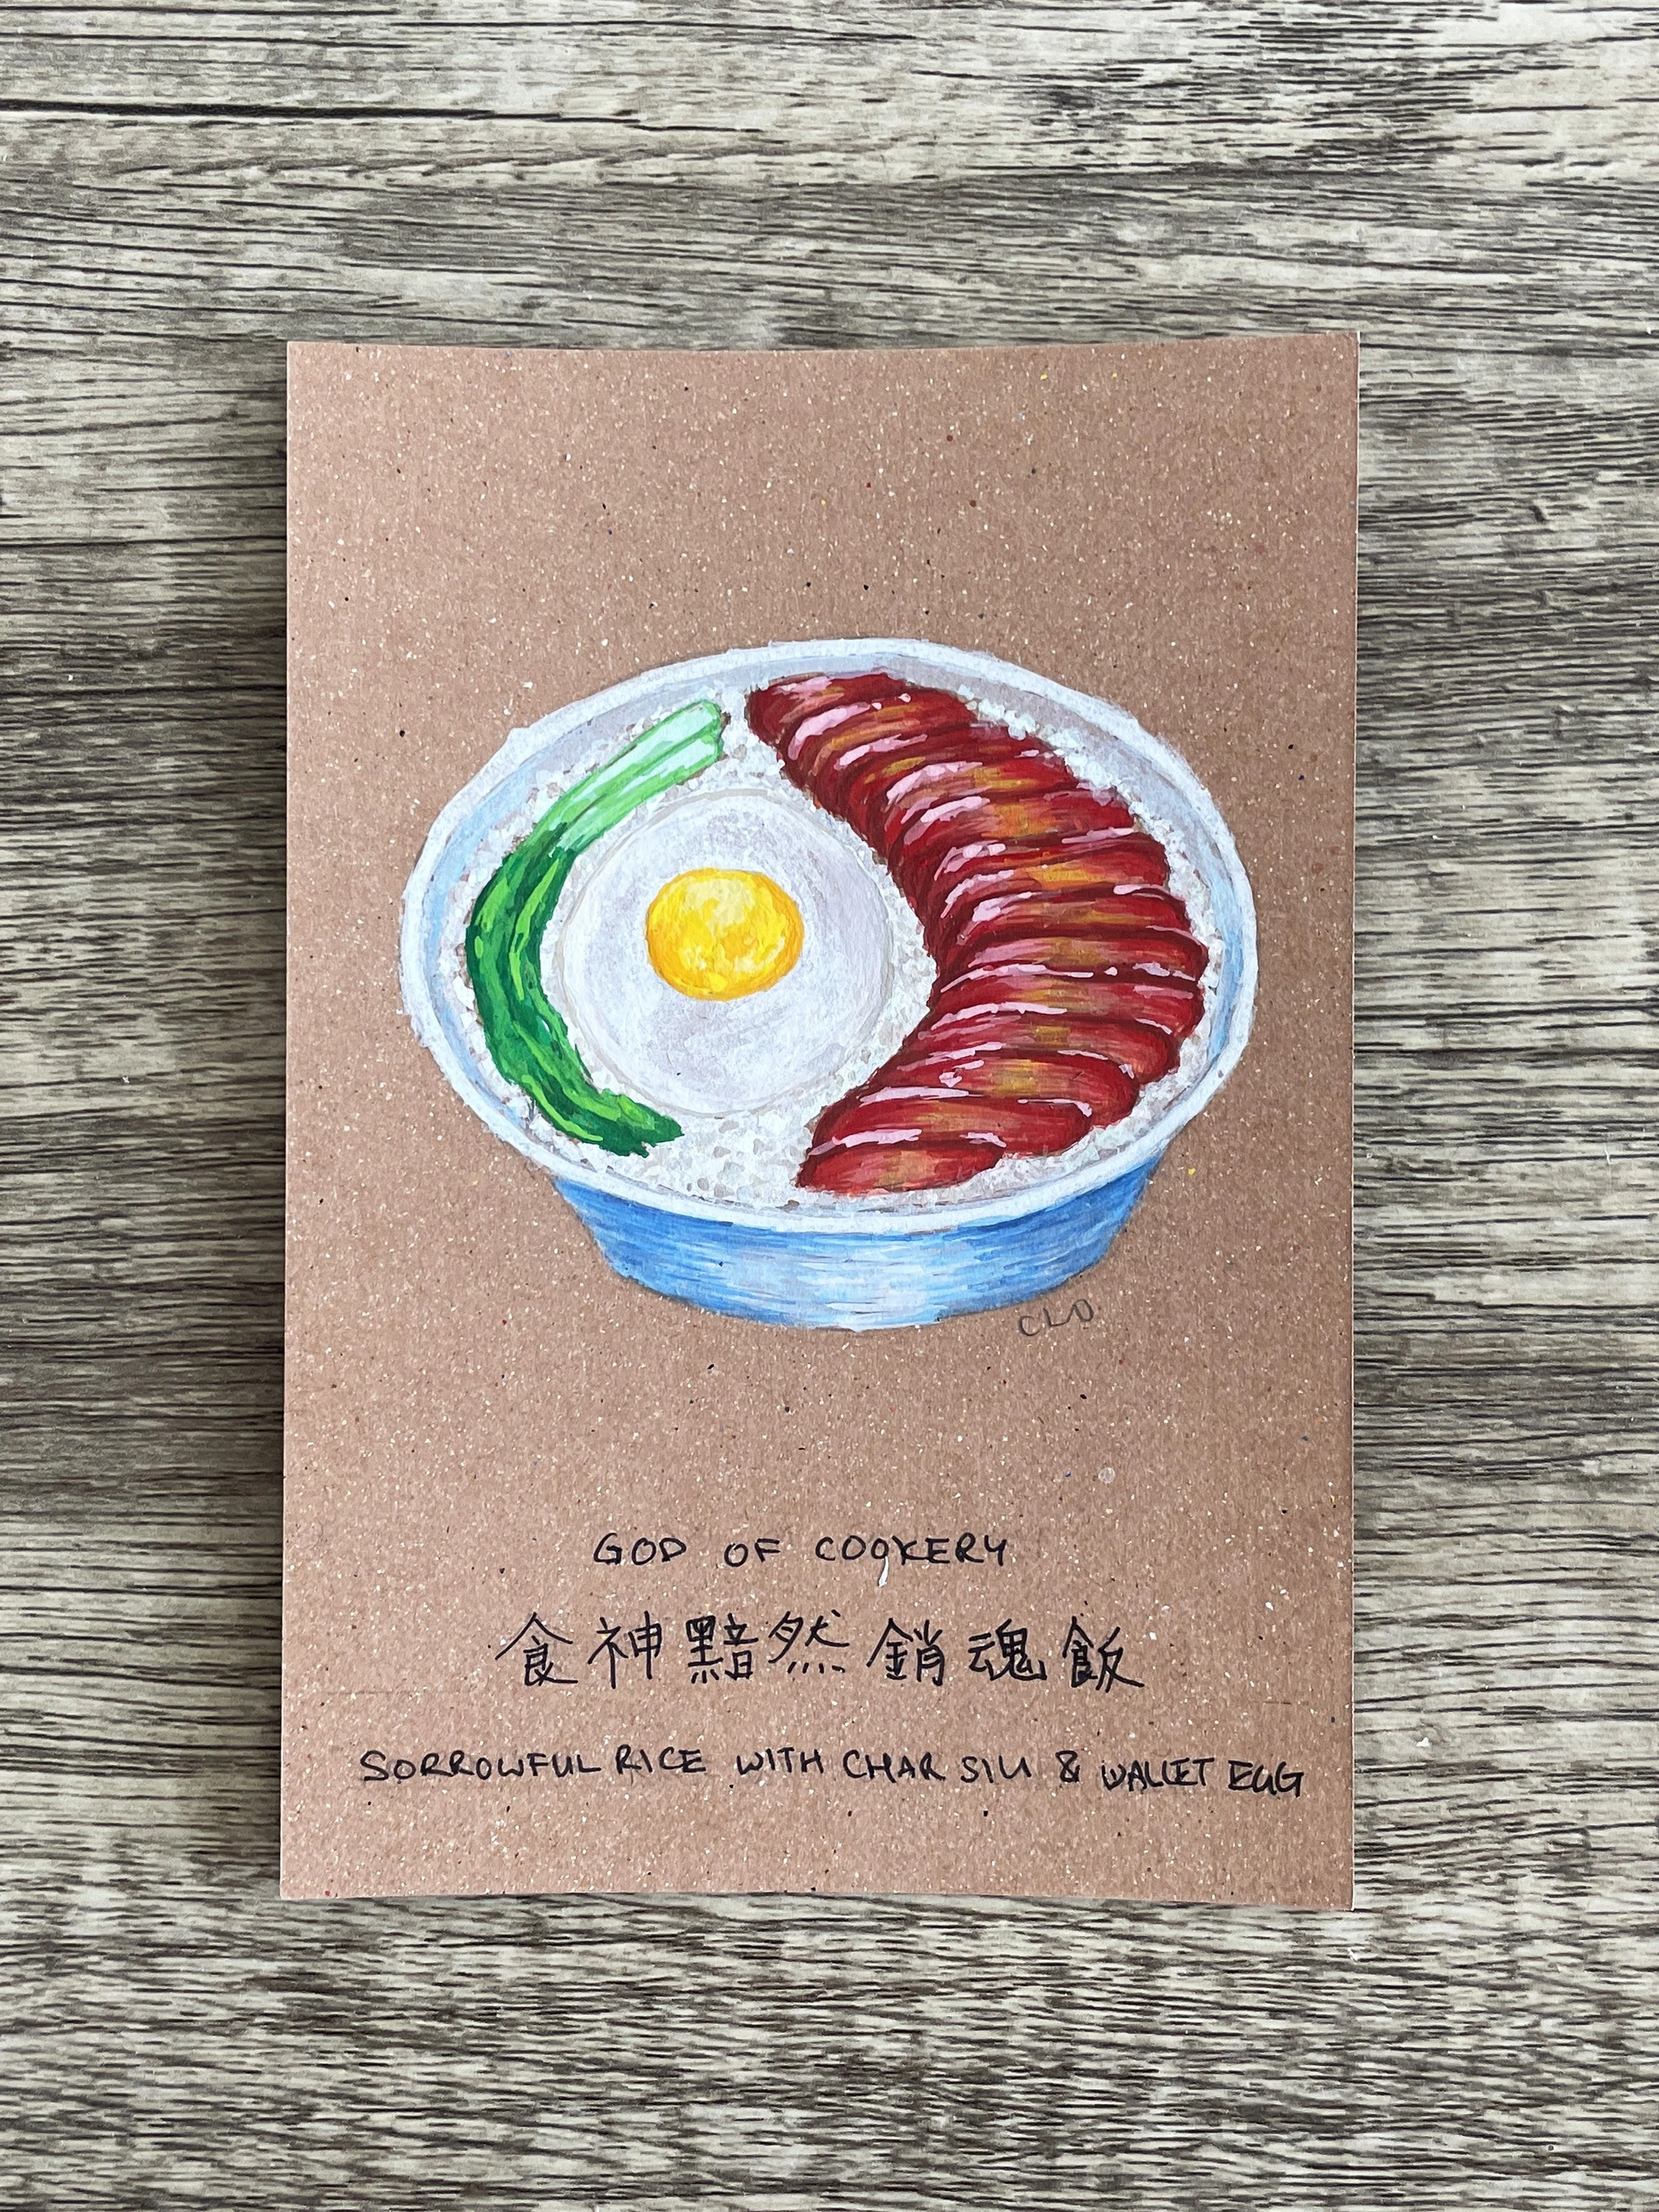 CLO
GOD OF COOKERY
食神黯然銷魂飯
SORROWFUL RICE WITH CHAR SIU & WALLET EGG